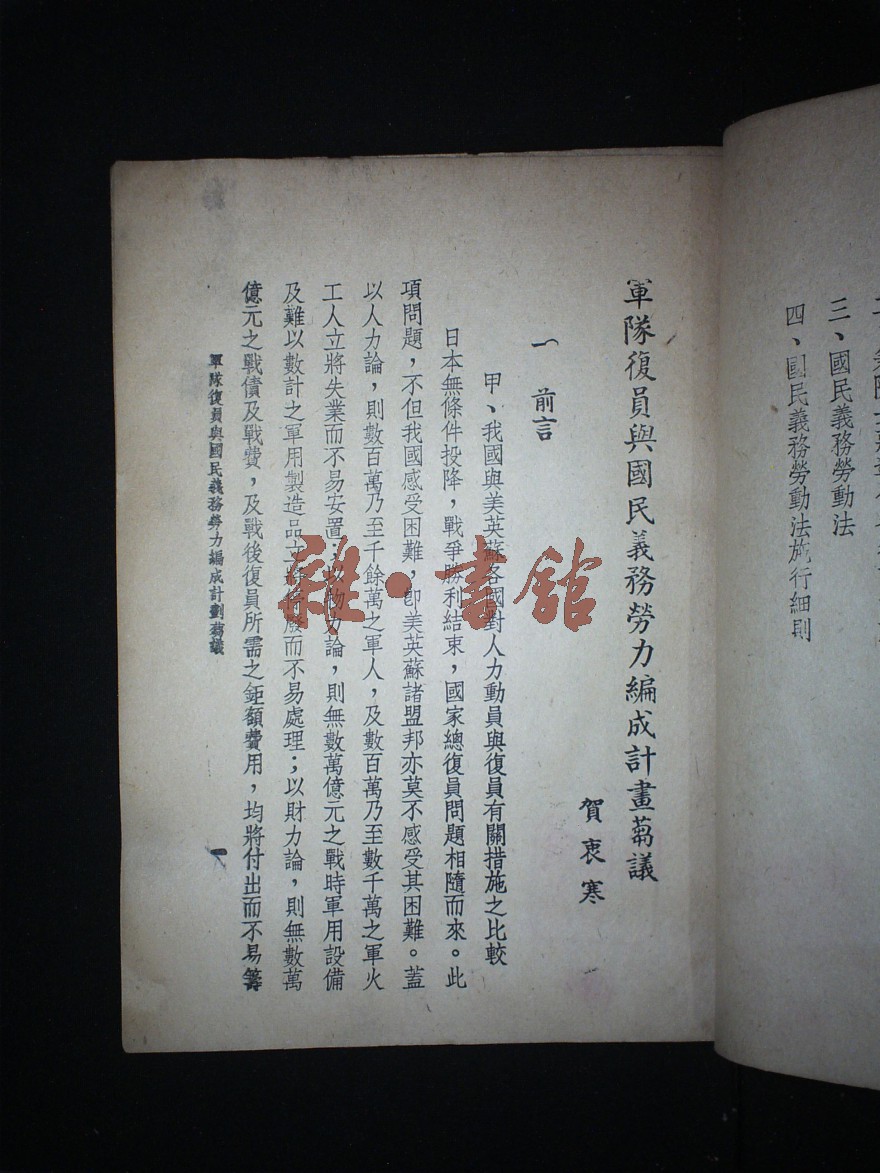 三、國民義務勞動法
四、國民義務勞動法施行細則
軍隊復員與國民義務勞力編成計畫芻議
賀衷寒
一 前言
甲、我國與美英蘇各國對人力動員與復員有關措施之比較
日本無條件投降，戰爭勝利結束，國家總復員問題相隨而來。此
項問題，不但我國感受困難，即美英蘇諸盟邦亦莫不感受其困難。蓋
以人力論，則數百萬乃至千餘萬之軍人，及數百萬乃至數千萬之軍火
工人立將失業而不易安置；以物力論，則無數萬億元之戰時軍用設備
及難以數計之軍用製造品立將停廢而不易處理；以財力論，則無數萬
億元之戰債及戰費，及戰後復員所需之鉅額費用，均將付出而不易籌
軍隊復員與國民義務勞力編成計劃芻議
一
雜·書館